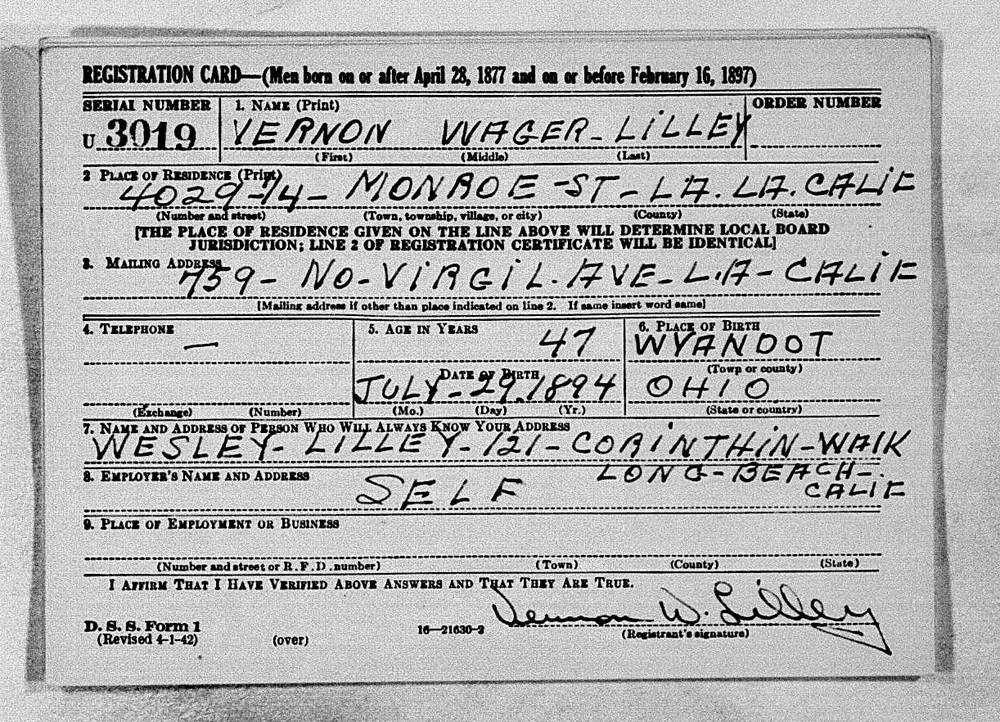 REGISTRATION CARD—(Men born on or after April 28, 1877 and on or before February 16, 1897)
SERIAL NUMBER 1. NAME (Print) ORDER NUMBER
U 3019 VERNON WAGER - LILLEY
(First) (Middle) (Last)
2 PLACE OF RESIDENCE (Print)
4029-1/4- MONROE-ST-LA. LA. CALIF
(Number and street) (Town, township, village, or city) (County) (State)
[THE PLACE OF RESIDENCE GIVEN ON THE LINE ABOVE WILL DETERMINE LOCAL BOARD
JURISDICTION; LINE 2 OF REGISTRATION CERTIFICATE WILL BE IDENTICAL]
3. MAILING ADDRESS
759- NO-VIRGIL. AVE-L.A- CALIF
[Mailing address if other than place indicated on line 2. If same insert word same]
4. TELEPHONE 5. AGE IN YEARS 6. PLACE OF BIRTH
— 47 WYANDOT
DATE OF BIRTH (Town or county)
JULY-29.1894 OHIO
(Exchange) (Number) (Mo.) (Day) (Yr.) (State or country)
7. NAME AND ADDRESS OF PERSON WHO WILL ALWAYS KNOW YOUR ADDRESS
WESLEY- LILLEY-121-CORINTHIN-WALK
8. EMPLOYER'S NAME AND ADDRESS LONG-BEACH-.
SELF CALIF
9. PLACE OF EMPLOYMENT OR BUSINESS
(Number and street or R.F.D. number) (Town) (County) (State)
I AFFIRM THAT I HAVE VERIFIED ABOVE ANSWERS AND THAT THEY ARE TRUE.
Vernon W. Lilley
D. S. S. Form 1 16—21630-2 (Registrant's signature)
(Revised 4-1-42) (over)